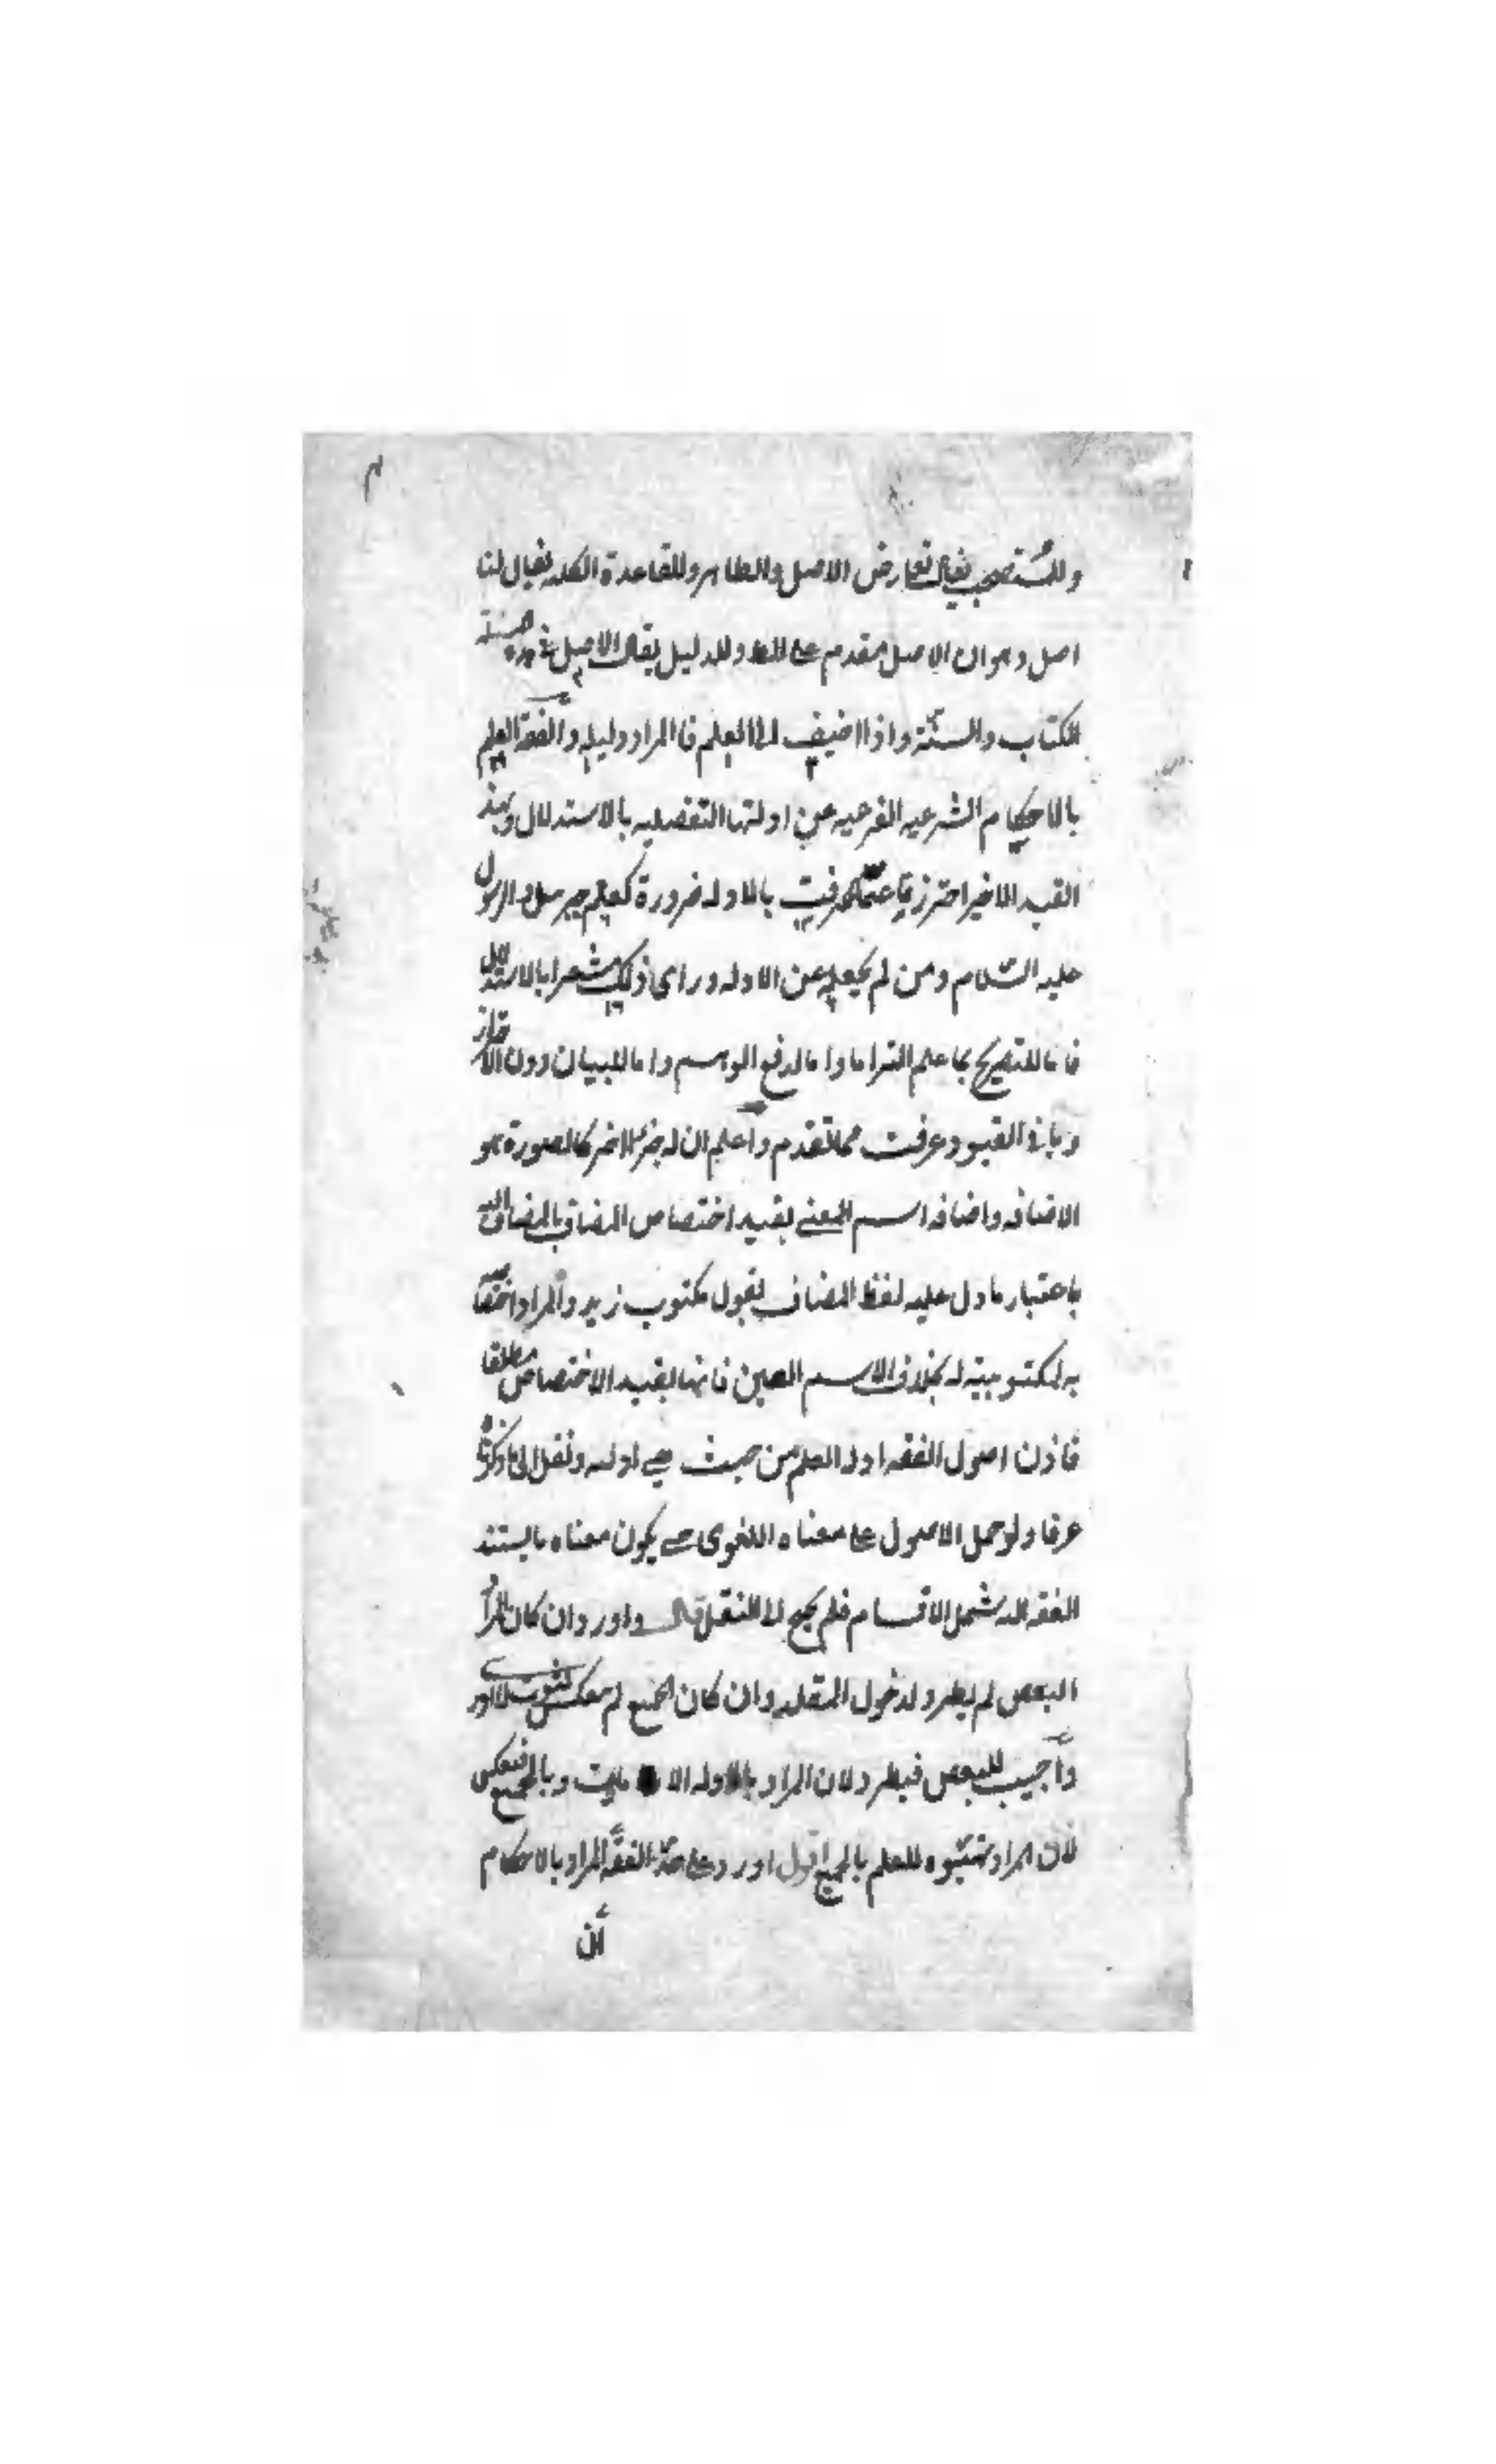 وللمستصحب يقال تعارض الاصل والظاهر وللقاعدة الكليه فيقال لنا
اصل وهو ان الاصل مقدم على الظ وللدليل يقال الاصل في هذه المسئلة
الكتاب والسنة واذا اضيف الى العلم فالمراد دليله والفقه العلم
بالاحكام الشرعيه الفرعيه عن ادلتها التفصيليه بالاستدلال وبهذا
القيد الاخير احترز عما عرفت بالادله ضرورة كعلم جبرئيل والرسول
عليه السلام ومن لم يجعله عن الادله وراى ذلك مشعرا بالاستدلال
فاما للتصريح بما علم التزاما واما لدفع الوهم واما للبيان دون الاحتراز
وباقى القيود عرفت مما تقدم واعلم ان له جزء اخر كالصورة هو
الاضافه واضافه اسم المعنى يفيد اختصاص المضاف بالمضاف اليه
باعتبار ما دل عليه لفظ المضاف يقول مكتوب زيد والمراد اختصاصه
به لمكتوبيته له بخلاف الاسم العين فانها يفيد الاختصاص مطلقا
فاذن اصول الفقه ادلة العلم من حيث هي ادلته ونقل الى ما ذكرنا
عرفا ولو حمل الاصول على معناه اللغوى حتى يكون معناه ما يستند
الفقه اليه شمل الاقسام فلم يحتج الى النقل قال واورد ان كان المراد
البعض لم يطرد لدخول المقلد وان كان الجميع لم ينعكس لثبوت لا ادرى
واجيب للبعض فيطرد لان المراد بالادله الامارات وبالجميع فينعكس
لان المراد تهيئوه للعلم بالجميع اقول اورد على حد الفقه المراد بالاحكام
ان